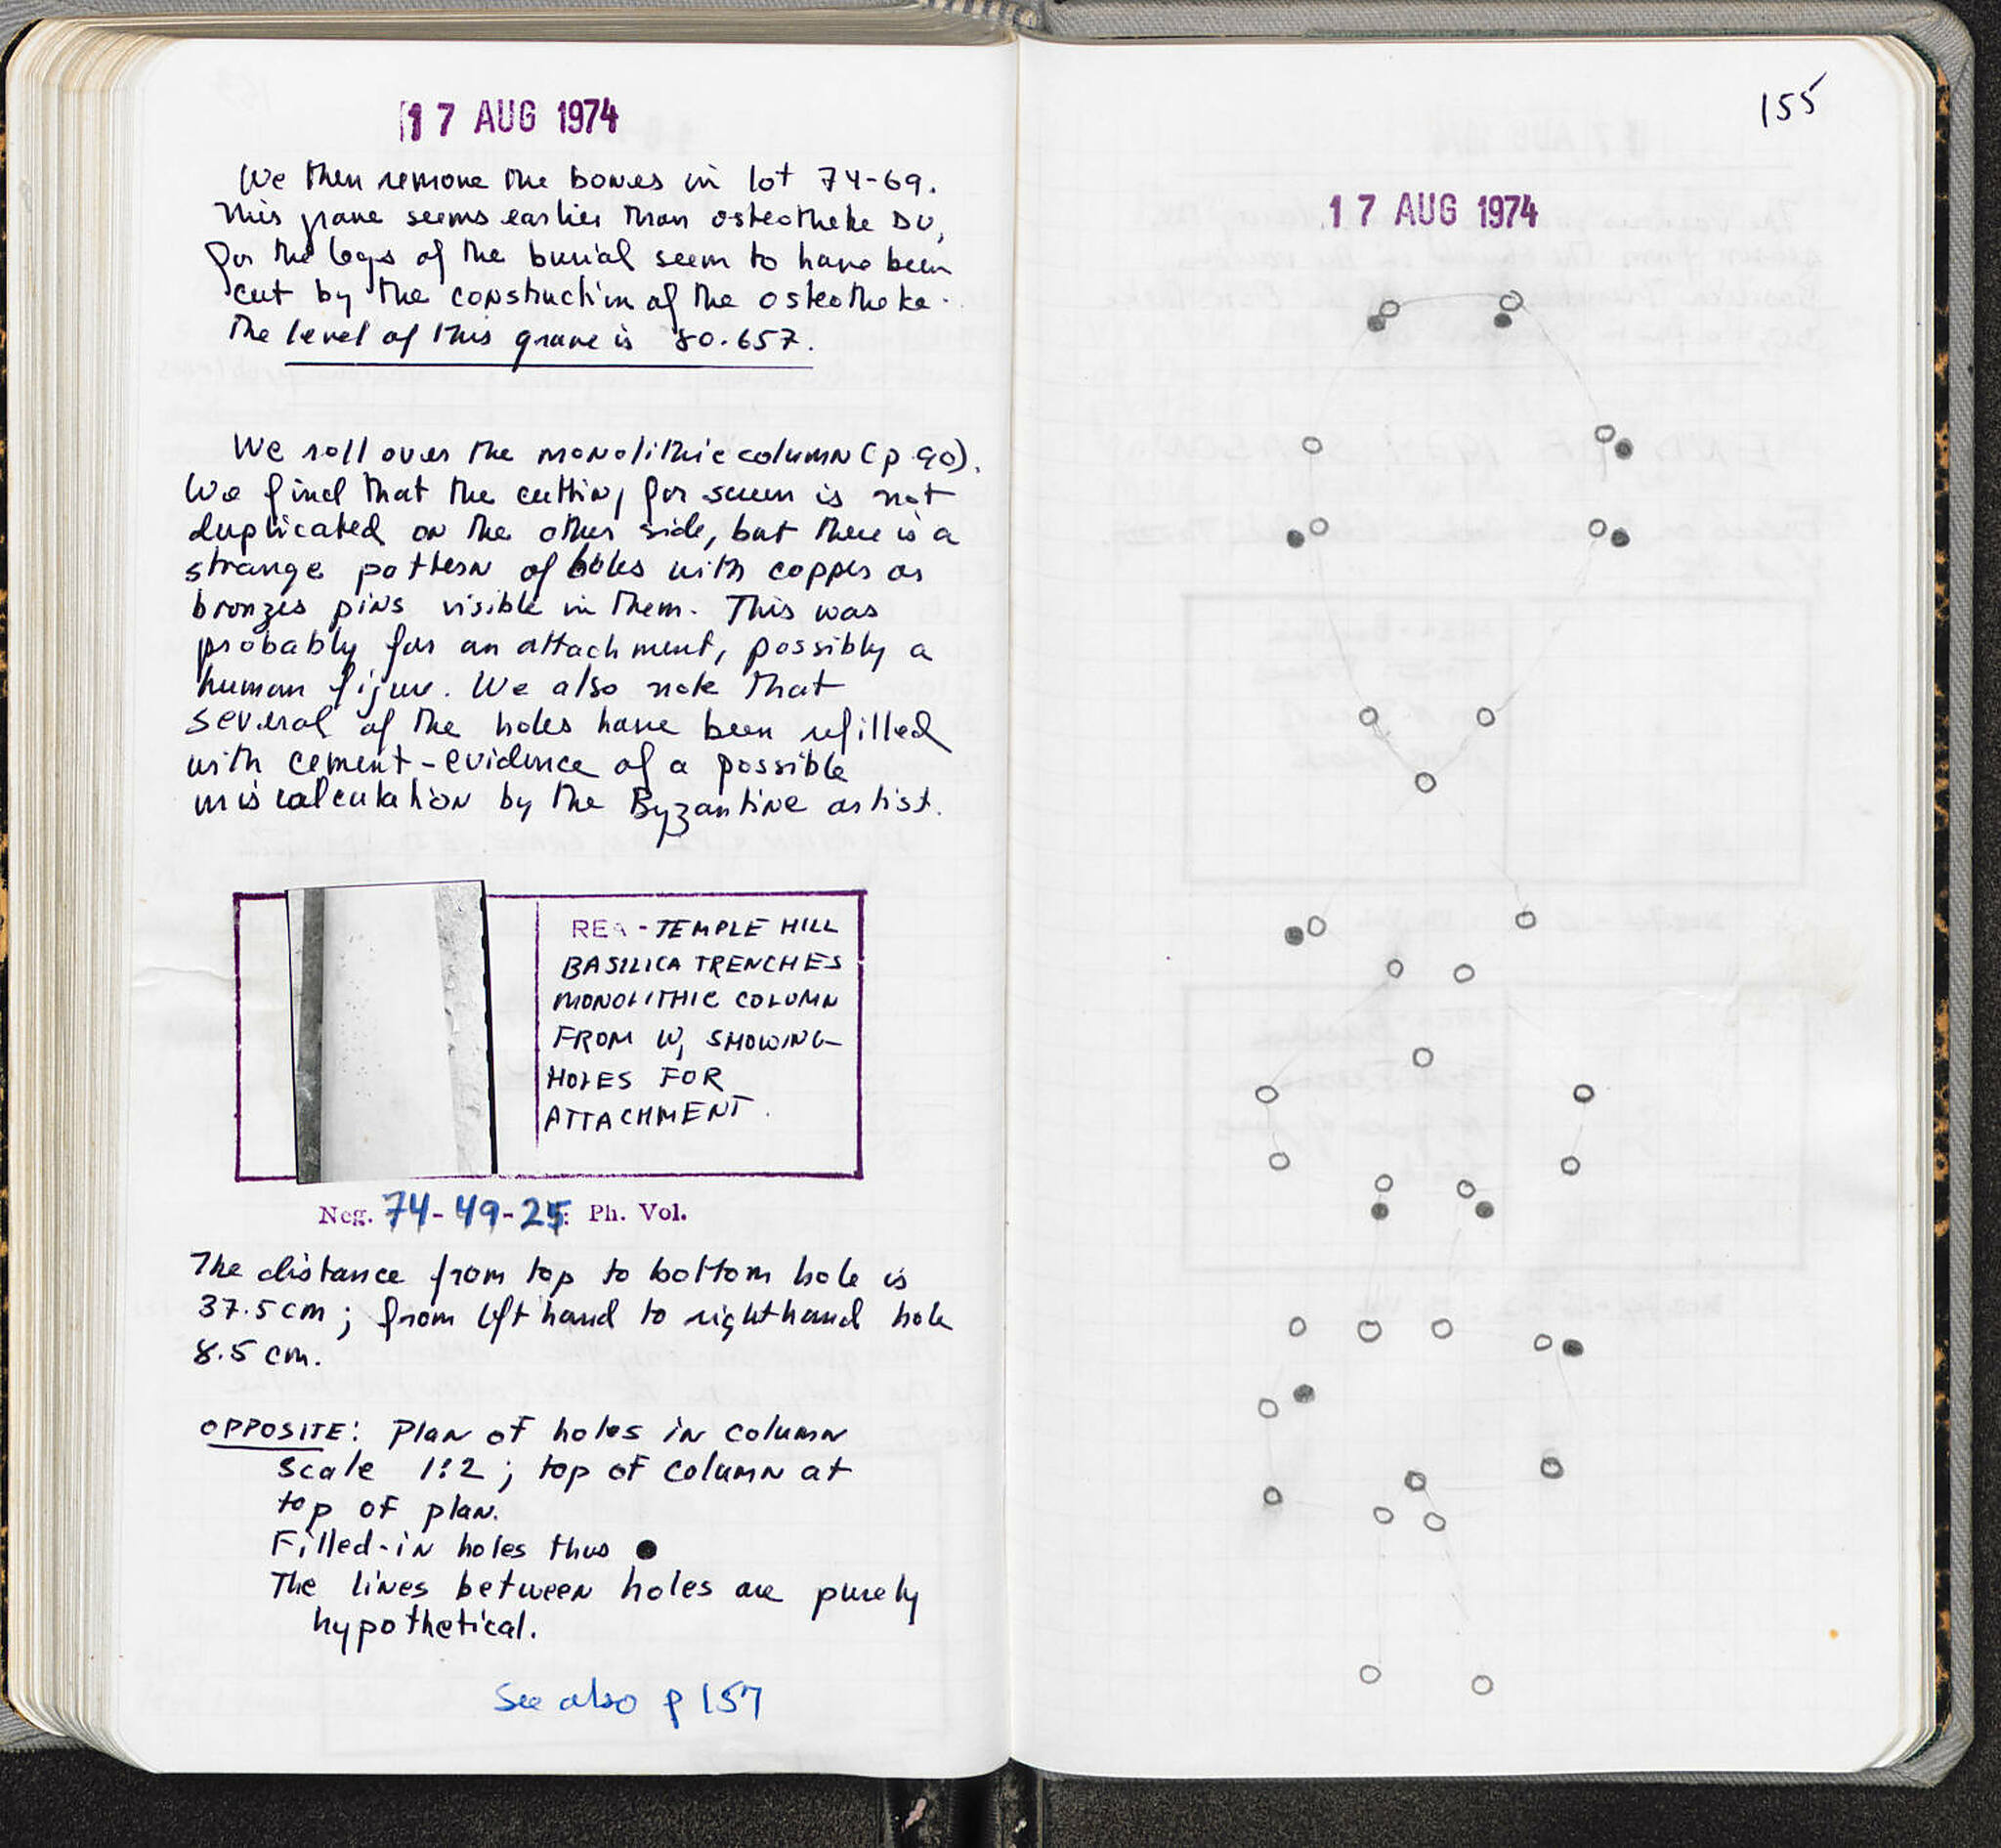 17 AUG 1974
We then remove the bones in lot 74-69.
This grave seems earlier than osteotheke DU,
for the legs of the burial seem to have been
cut by the construction of the osteotheke.
The level of this grave is 80.657.
We roll over the monolithic column (p 90).
We find that the cutting for screen is not
duplicated on the other side, but there is a
strange pattern of holes with copper or
bronzes pins visible in them. This was
probably for an attachment, possibly a
human figure. We also note that
several of the holes have been refilled
with cement - evidence of a possible
miscalculation by the Byzantine artist.
REA - TEMPLE HILL
BASILICA TRENCHES
MONOLITHIC COLUMN
FROM W, SHOWING
HOLES FOR
ATTACHMENT.
Neg. 74-49-25: Ph. Vol.
The distance from top to bottom hole is
37.5 cm; from left hand to righthand hole
8.5 cm.
OPPOSITE: Plan of holes in column
Scale 1:2; top of column at
top of plan.
Filled-in holes thus ●
The lines between holes are purely
hypothetical.
See also p 157
155
17 AUG 1974